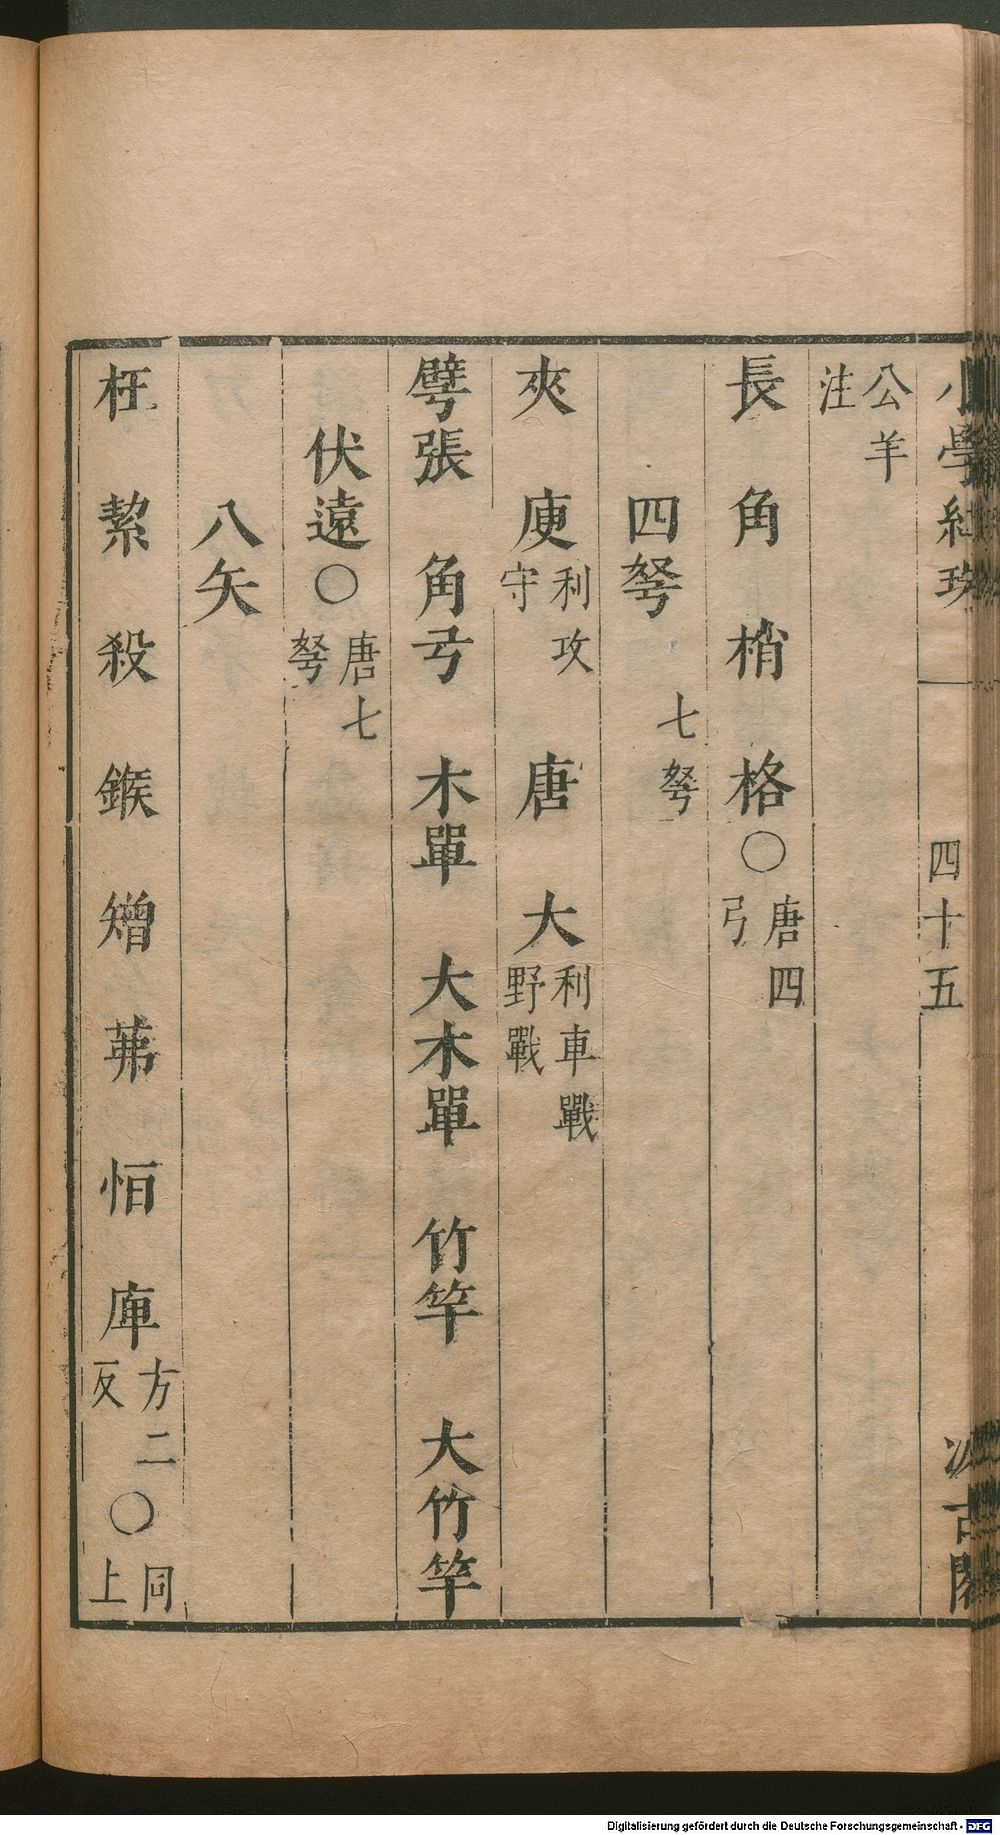 小學紺珠 四十五 汲古閣
公羊注
長 角 梢 格○唐四弓
四弩 七弩
夾 庾利攻守 唐 大利車戰野戰
擘張 角弓 木單 大木單 竹竿 大竹竿
伏遠○唐七弩
八矢
枉 絜 殺 鍭 矰 茀 恒 庳方二反○同上
Digitalisierung gefördert durch die Deutsche Forschungsgemeinschaft - DFG